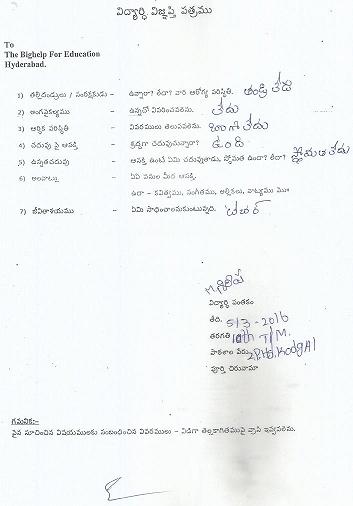 విద్యార్థి విజ్ఞప్తి పత్రము
To
The Bighelp For Education
Hyderabad.
1) తల్లిదండ్రులు / సంరక్షకుడు - ఉన్నారా? లేదా? వారి ఆరోగ్య పరిస్థితి. తండ్రి లేడు
2) అంగవైకల్యము - ఉన్నచో వివరించవలెను. లేదు
3) ఆర్థిక పరిస్థితి - వివరములు తెలుపవలెను. బాగాలేదు
4) చదువు పై ఆసక్తి - శ్రద్ధగా చదువుచున్నారా? ఉంది
5) ఉన్నతచదువు - ఆసక్తి ఉంటే ఏమి చదువుతాడు, స్తోమత ఉందా? లేదా? స్తోమత లేదు
6) అలవాట్లు - ఏఏ పనుల మీద ఆసక్తి.
ఉదా - కవిత్వము, సంగీతము, అల్లికలు, నాట్యము మొ॥
7) జీవితాశయము - ఏమి సాధించాలనుకుంటున్నది. టీచర్
విద్యార్థి సంతకం
తేది. 5/3-2016
తరగతి 10th T/M.
పాఠశాల పేరు
పూర్తి చిరునామా
గమనిక:-
పైన సూచించిన విషయములకు సంబంధించిన వివరములు - విడిగా తెల్లకాగితముపై వ్రాసి ఇవ్వవలెను.